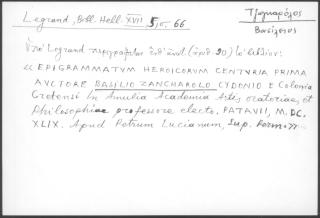 Legrand, Bibl. Hell. XVII 5, σ. 66
Τζαγκαρόλος
Βασίλειος
Ὑπὸ Legrand περιγράφεται ἀριθ. 20) τὸ βιβλίον:
« EPIGRAMMATUM HEROICORUM CENTURIA PRIMA
AUCTORE BASILIO ZANCHAROLO CYDONIO E Colonia
Cretensi In Aemulia Academia Artis oratoriae, et
Philosophiae professore electo. PATAVII, M.DC.
XLIX. Apud Petrum Lucianum, Sup. Perm. »